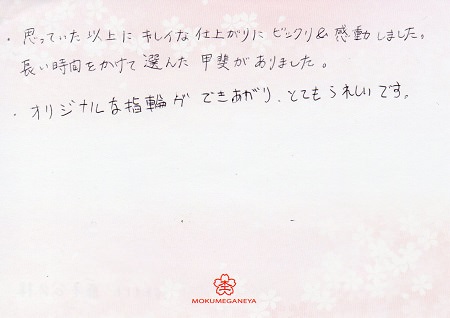 ・思っていた以上にキレイな仕上がりにビックリ&感動しました。
長い時間をかけて選んだ甲斐がありました。
・オリジナルな指輪ができあがり、とてもうれしいです。
MOKUMEGANEYA